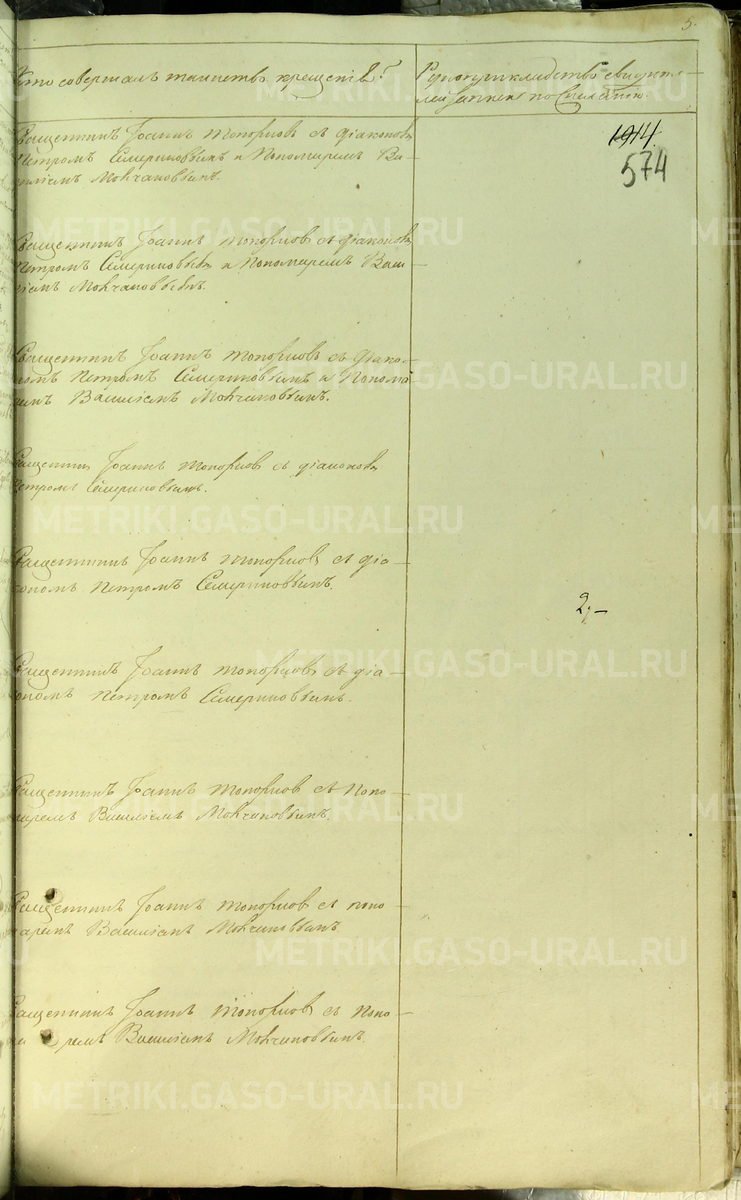 5.
Кто совершалъ таинство крещенія?
Рукоприкладство свидѣте-
лей записи по желанію.
1914.
574
Священникъ Іоаннъ Топорковъ съ діакономъ
Петромъ Семериковымъ и Пономаремъ Ва-
силіемъ Молчановымъ.
Священникъ Іоаннъ Топорковъ съ діакономъ
Петромъ Семериковымъ и Пономаремъ Васи-
ліемъ Молчановымъ.
Священникъ Іоаннъ Топорковъ съ діако-
номъ Петромъ Семериковымъ и Понома-
ремъ Василіемъ Молчановымъ.
Священникъ Іоаннъ Топорковъ съ діакономъ
Петромъ Семериковымъ.
Священникъ Іоаннъ Топорковъ съ діа-
кономъ Петромъ Семериковымъ.
2,-
Священникъ Іоаннъ Топорковъ съ діа-
кономъ Петромъ Семериковымъ.
Священникъ Іоаннъ Топорковъ съ Поно-
маремъ Василіемъ Молчановымъ.
Священникъ Іоаннъ Топорковъ съ поно-
маремъ Василіемъ Молчановымъ.
Священникъ Іоаннъ Топорковъ съ Поно-
маремъ Василіемъ Молчановымъ.
METRIKI.GASO-URAL.RU